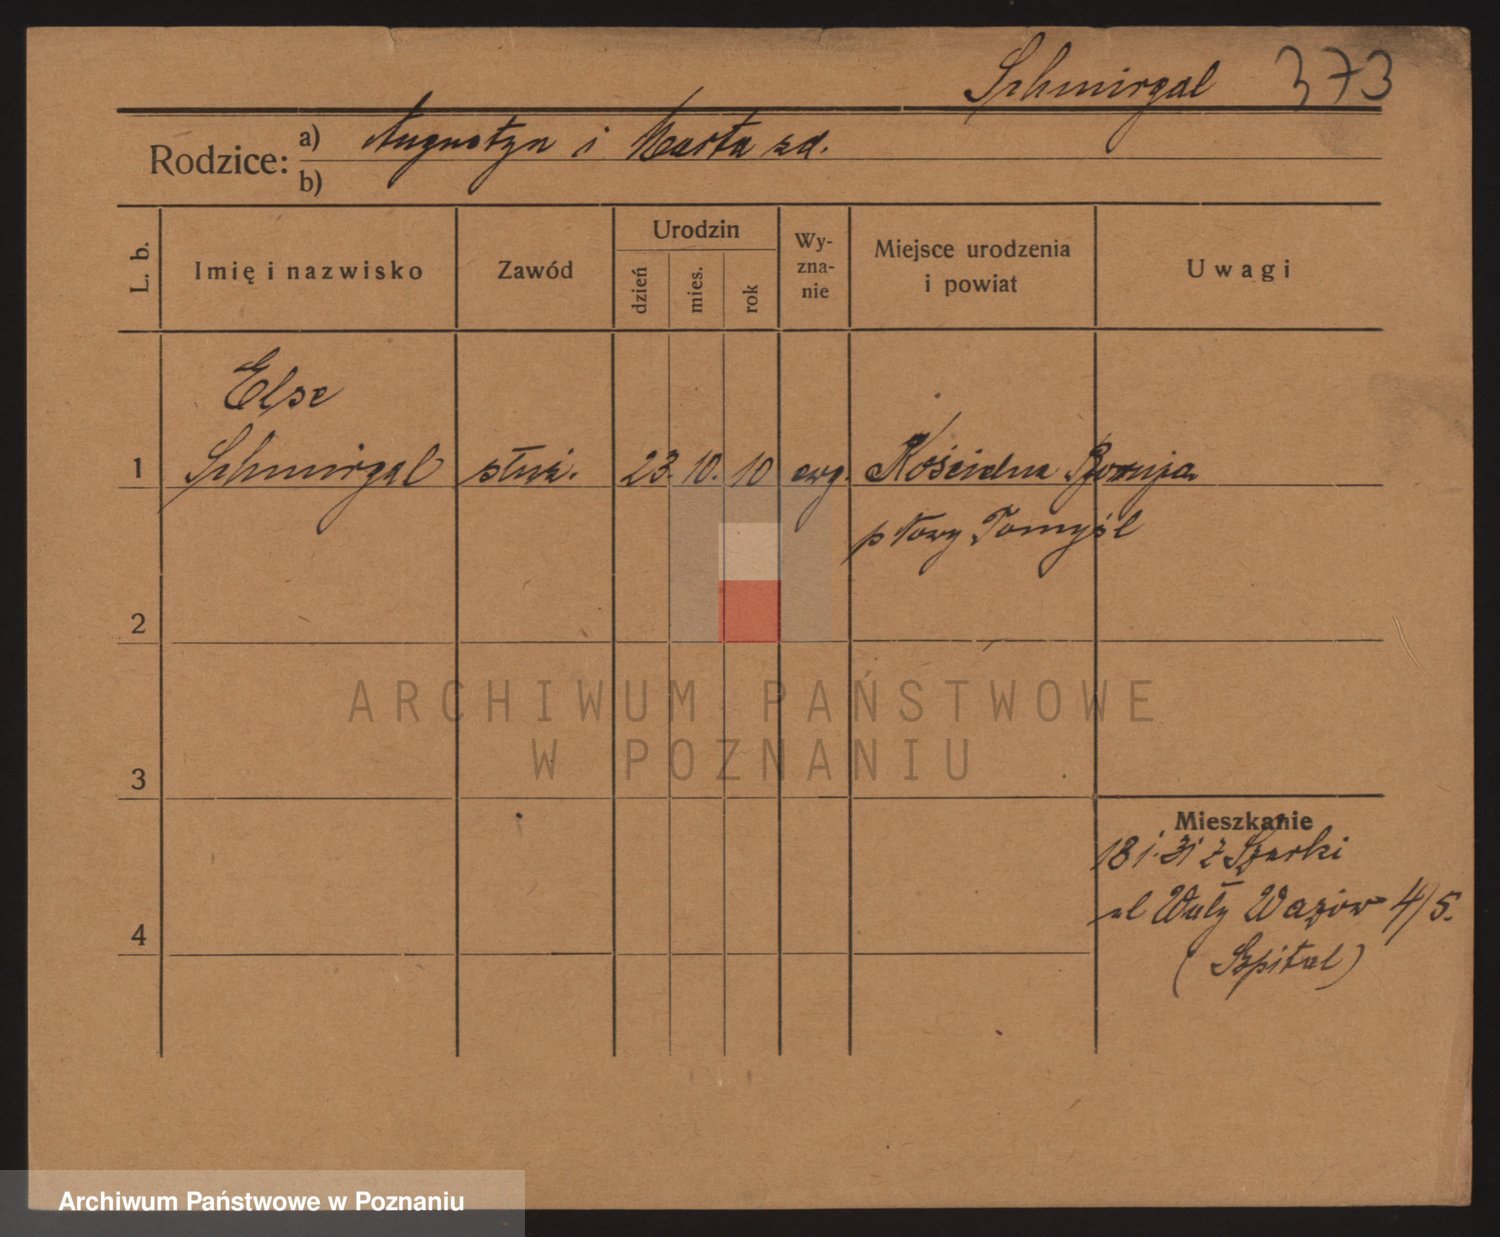 Schmirgal 373
Rodzice: a) Augustyn i Marta zd.
b)
L. b.
Imię i nazwisko
Zawód
Urodzin
dzień
mies.
rok
Wy-
zna-
nie
Miejsce urodzenia
i powiat
Uwagi
Else
1 Schmirgal służ. 23. 10. 10 ewg. Kościelna Boruja
p Nowy Tomyśl
2
3
4
Mieszkanie
18 1. 31 z
ul Wały Wazów 4/5.
(Szpital)
ARCHIWUM PAŃSTWOWE
W POZNANIU
Archiwum Państwowe w Poznaniu